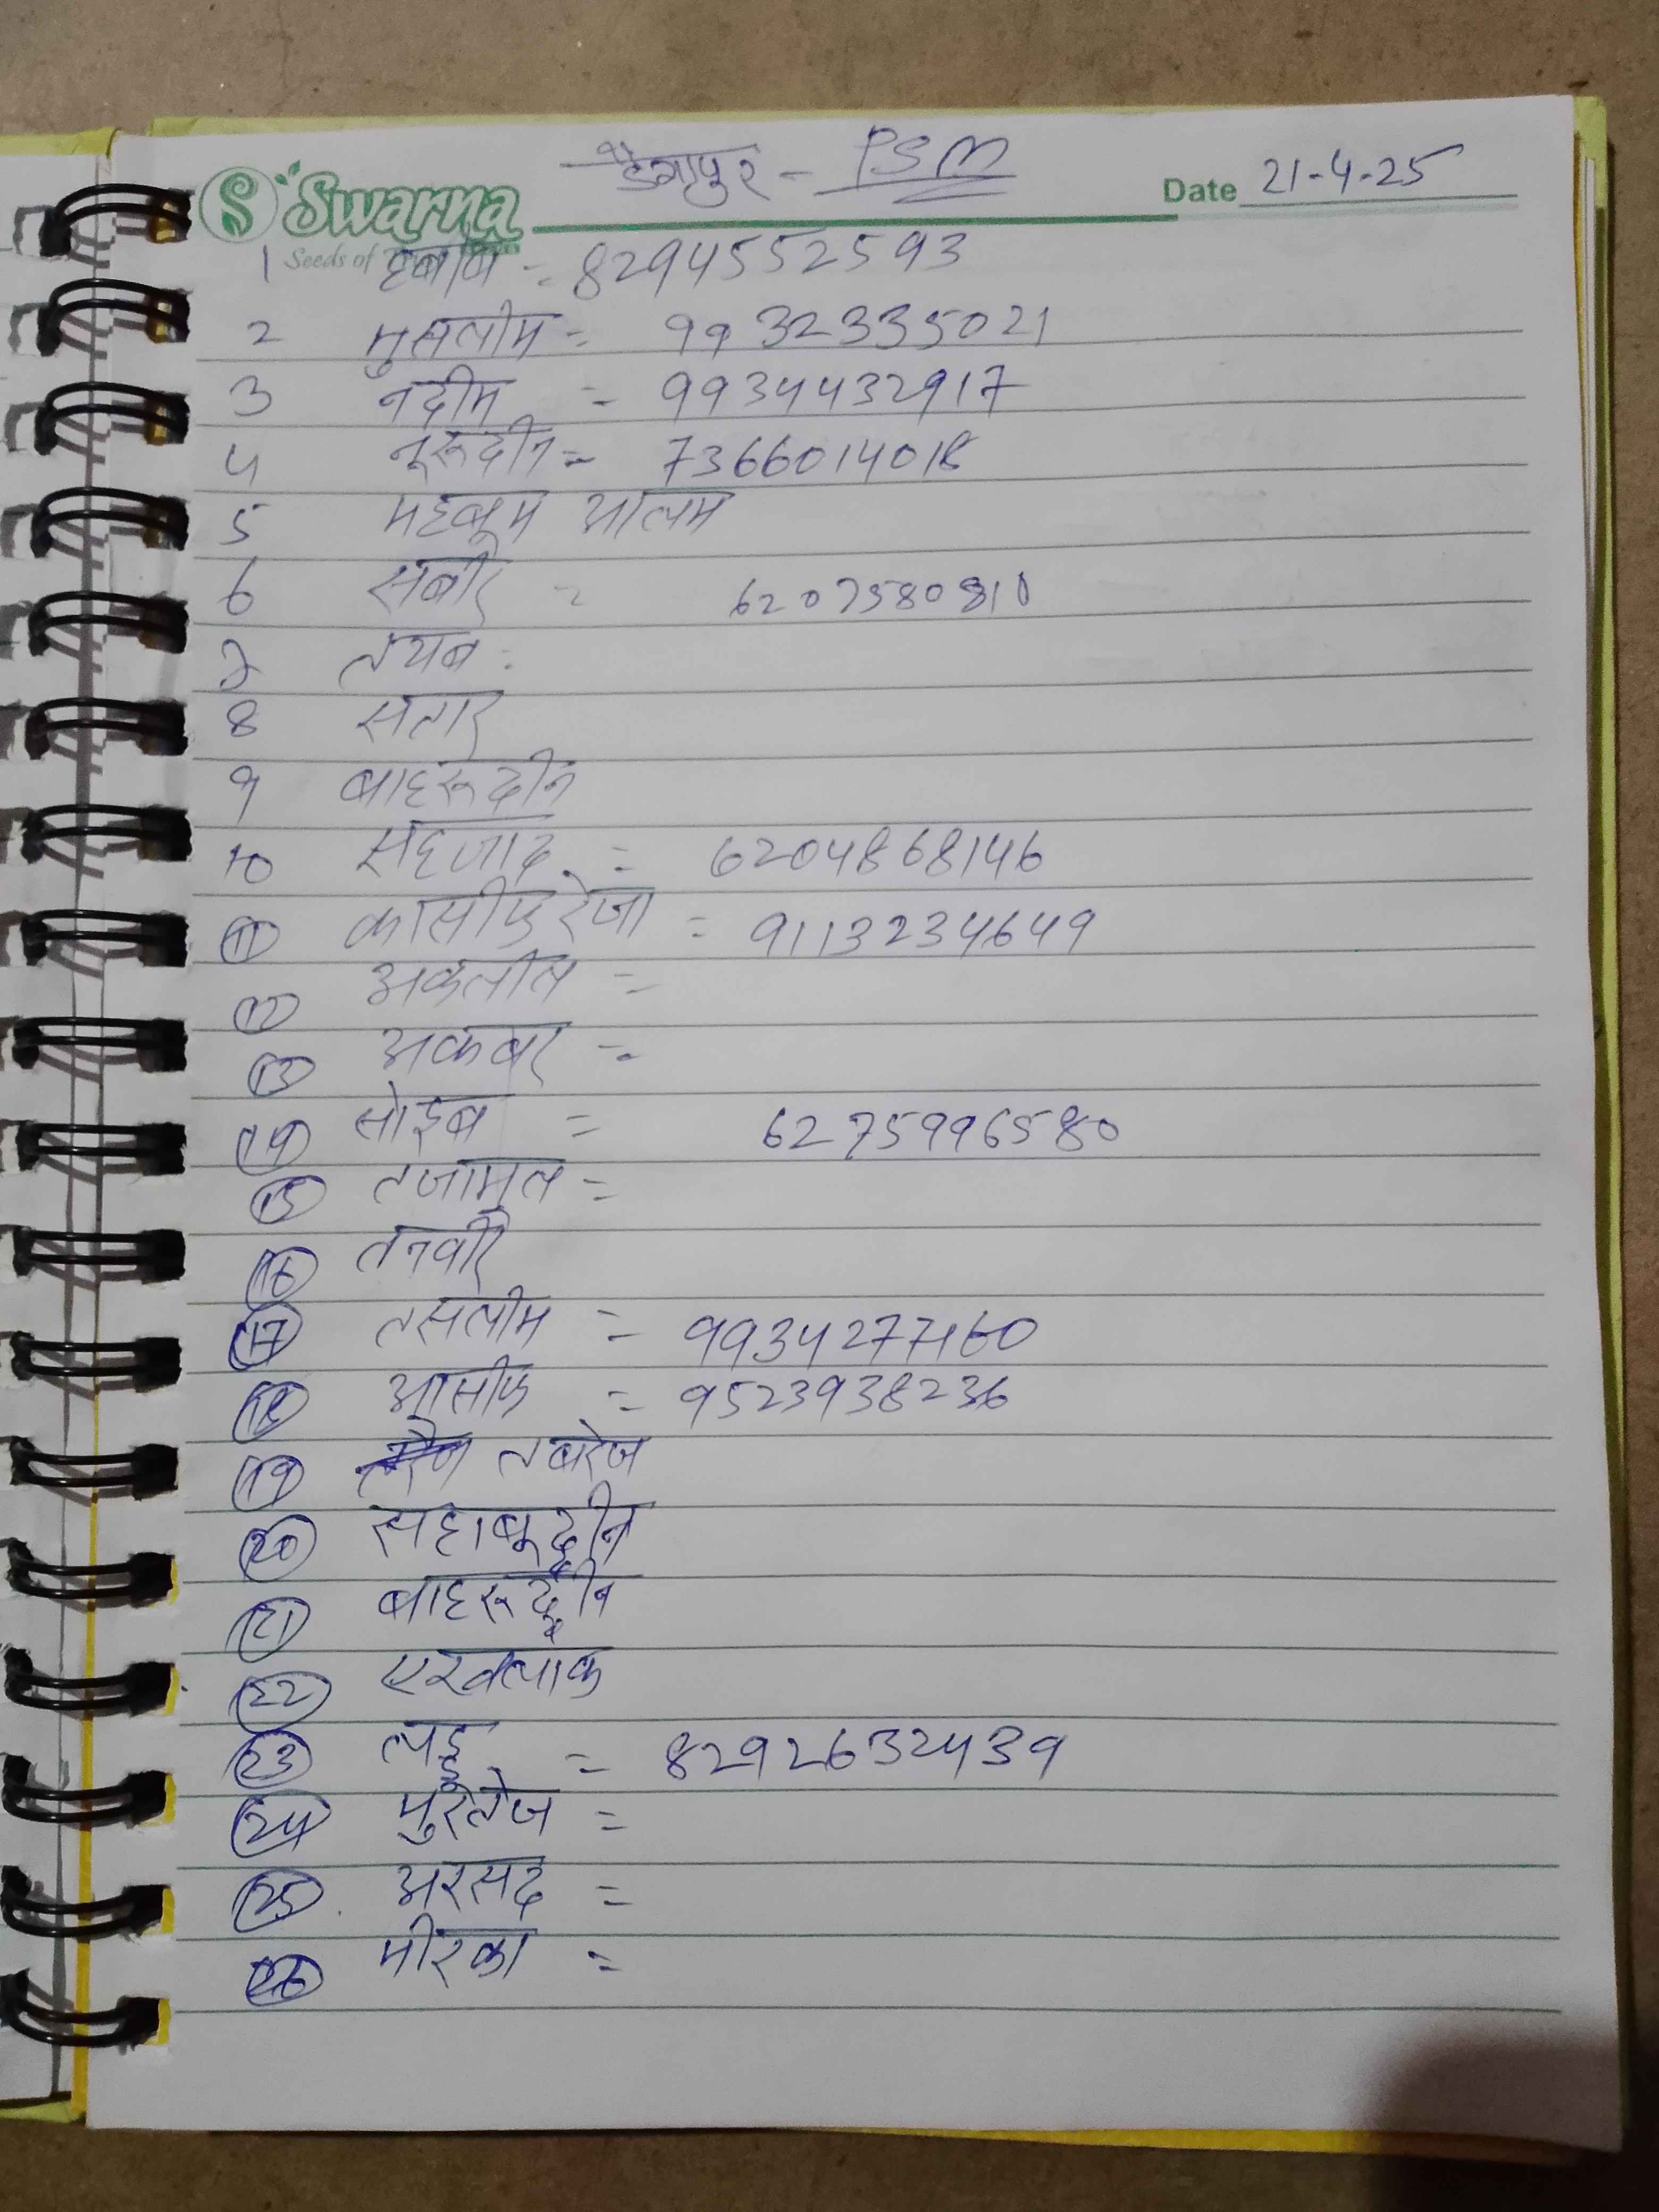 डेंगापुर - PSM
Swarna
Date 21-4-25
Seeds of
1 = 8294552593
2 मुसलीम = 9932335021
3 नदीम = 9934432917
4 नूरूदीन = 7366014018
5 महबूम आलम
6 सबीर = 6207580810
7 तयब :
8 सतार
9 बाहरूदीन
10 सहजाद = 6204868146
11 कासीफ रेजा = 9113234649
12 =
13 अकबर =
14 सोइब = 6275996580
15 तजामुल =
16 तनवीर
17 तसलीम = 9934277160
18 आसीफ = 9523938236
19 तबरेज
20 सहाबूद्दीन
21 बाहरूद्दीन
22 एखलाक
23 लड्डू = 8292632439
24 मुरतेज =
25 अरसद =
26 मीरका =